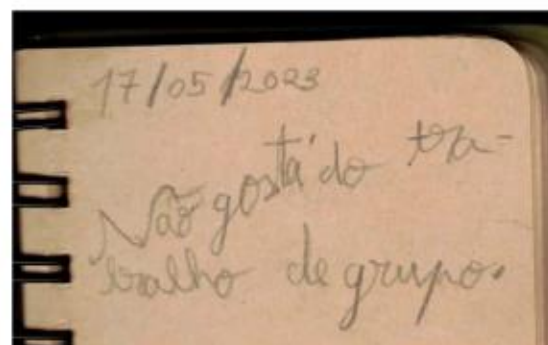 17/05/2023
Não gosta do tra-
balho de grupo.